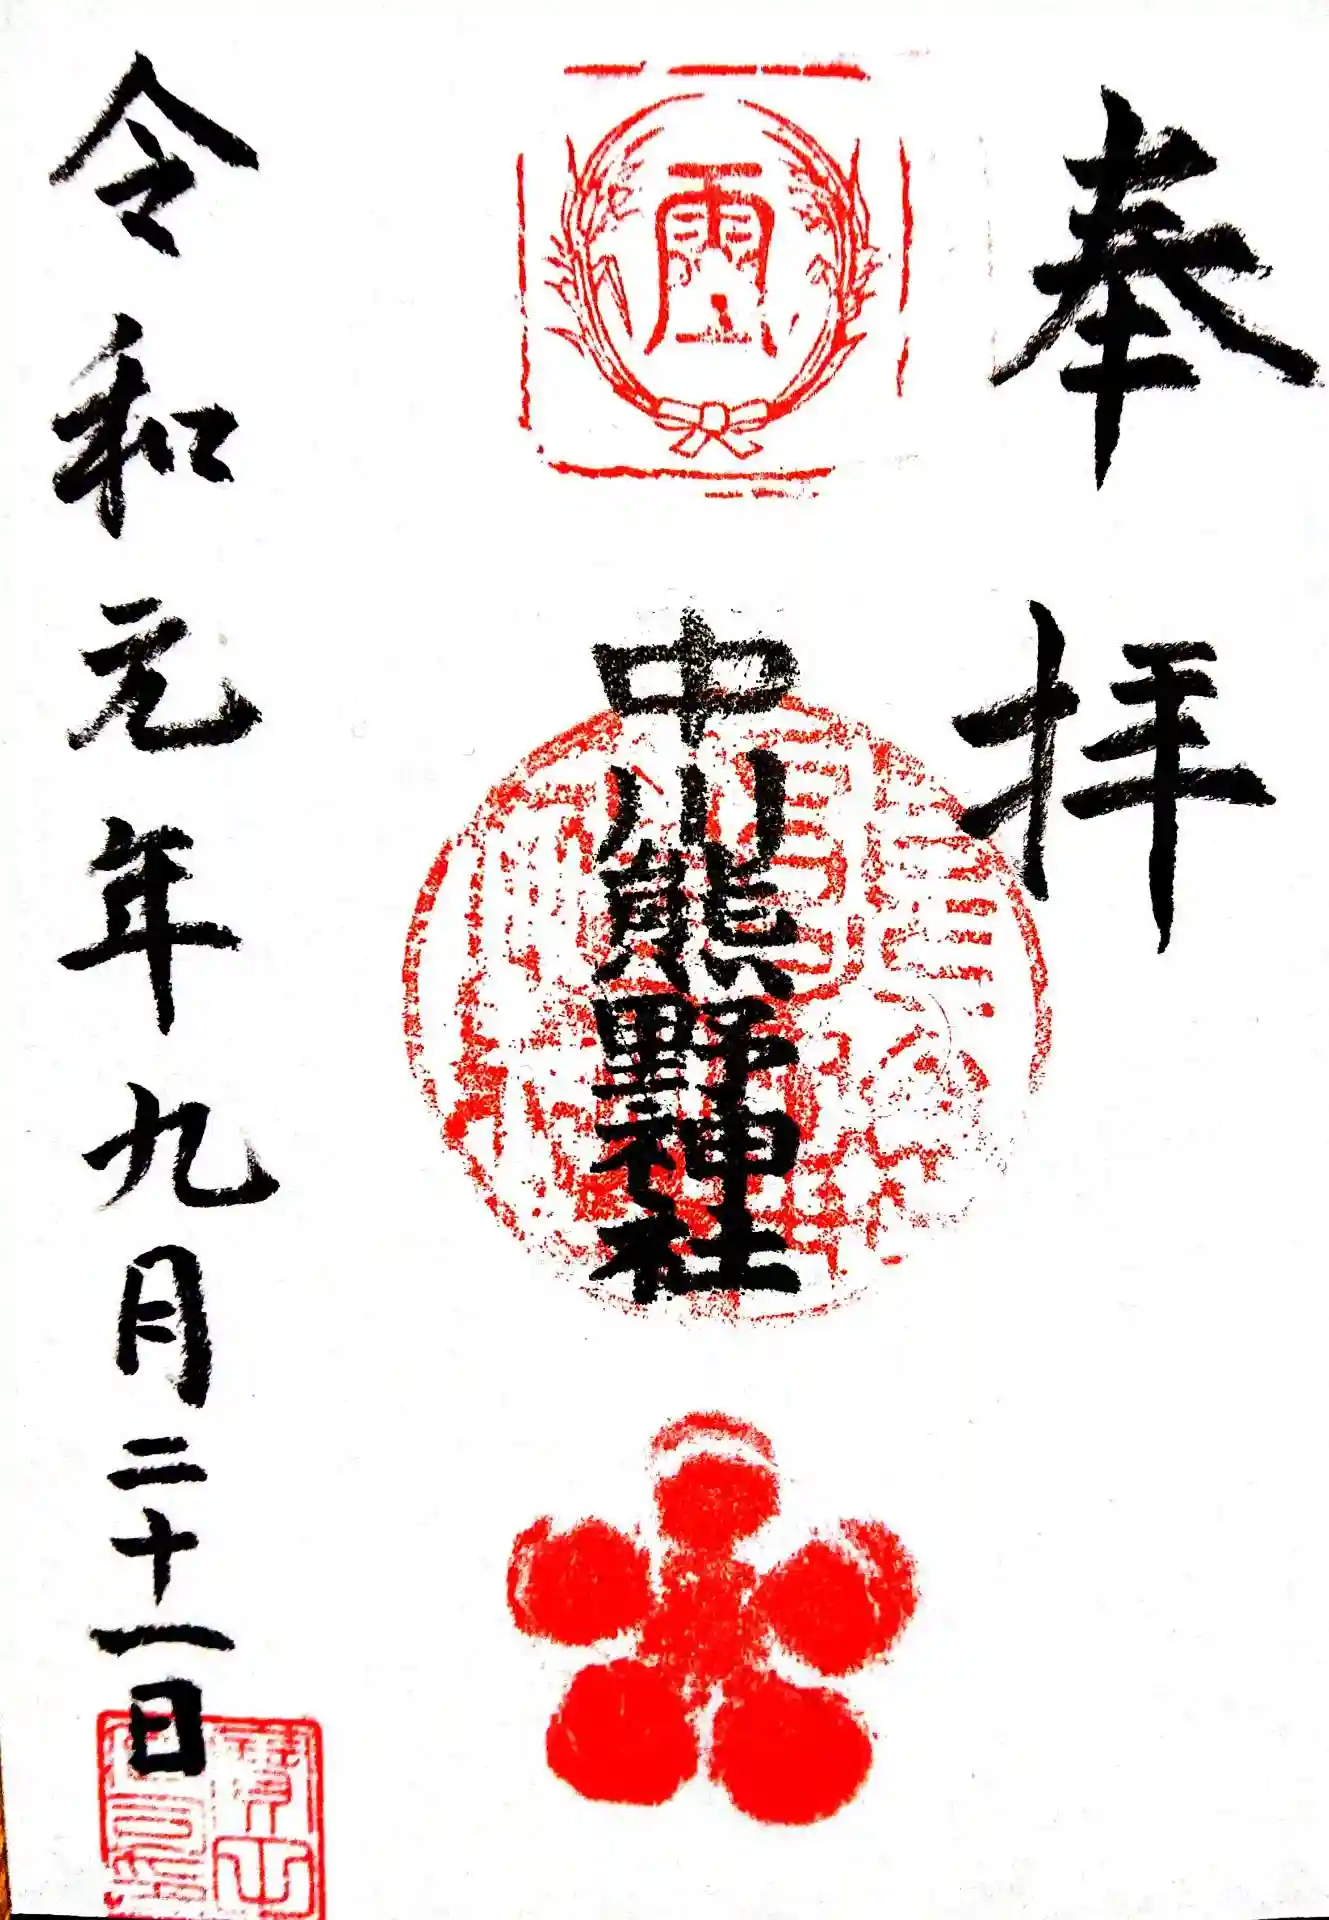 奉拝
中川熊野神社
令和元年九月二十一日